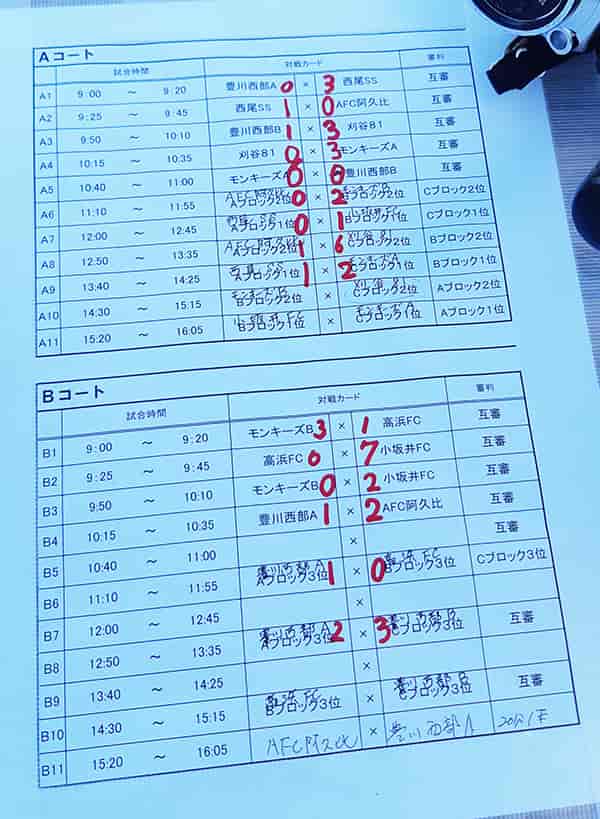 Aコート
試合時間 対戦カード 審判
A1 9:00 ～ 9:20 豊川西部A 0 × 3 西尾SS 互審
A2 9:25 ～ 9:45 西尾SS 1 × 0 AFC阿久比 互審
A3 9:50 ～ 10:10 豊川西部B 1 × 3 刈谷81 互審
A4 10:15 ～ 10:35 刈谷81 0 × 3 モンキーズA 互審
A5 10:40 ～ 11:00 モンキーズA 0 × 0 豊川西部B 互審
AFC阿久比 モンキーズB
A6 11:10 ～ 11:55 Aブロック2位 0 × 2 Bブロック2位 Cブロック2位
西尾SS 小坂井FC
A7 12:00 ～ 12:45 Aブロック1位 0 × 1 Bブロック1位 Cブロック1位
AFC阿久比 刈谷81
A8 12:50 ～ 13:35 Aブロック2位 1 × 6 Cブロック2位 Bブロック2位
西尾SS モンキーズA
A9 13:40 ～ 14:25 Aブロック1位 1 × 2 Cブロック1位 Bブロック1位
モンキーズB 刈谷81
A10 14:30 ～ 15:15 Bブロック2位 × Cブロック2位 Aブロック2位
小坂井FC モンキーズA
A11 15:20 ～ 16:05 Bブロック1位 × Cブロック1位 Aブロック1位
Bコート
試合時間 対戦カード 審判
B1 9:00 ～ 9:20 モンキーズB 3 × 1 高浜FC 互審
B2 9:25 ～ 9:45 高浜FC 0 × 7 小坂井FC 互審
B3 9:50 ～ 10:10 モンキーズB 0 × 2 小坂井FC 互審
B4 10:15 ～ 10:35 豊川西部A 1 × 2 AFC阿久比 互審
B5 10:40 ～ 11:00 × 互審
豊川西部A 高浜FC
B6 11:10 ～ 11:55 Aブロック3位 1 × 0 Bブロック3位 Cブロック3位
B7 12:00 ～ 12:45 ×
豊川西部A 豊川西部B
B8 12:50 ～ 13:35 Aブロック3位 2 × 3 Cブロック3位 互審
B9 13:40 ～ 14:25 ×
高浜FC 豊川西部B
B10 14:30 ～ 15:15 Bブロック3位 × Cブロック3位 互審
B11 15:20 ～ 16:05 AFC阿久比 × 豊川西部A 20分1本